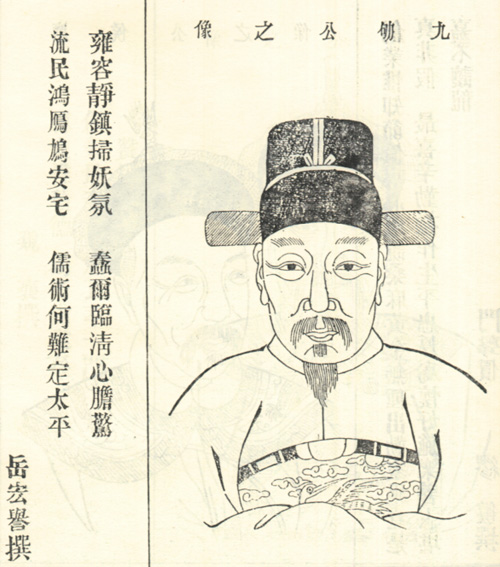 九仞公之像
雍容靜鎮掃妖氛　蠢爾臨清心膽驚
流民鴻鴈鳩安宅　儒術何難定太平
岳宏譽撰